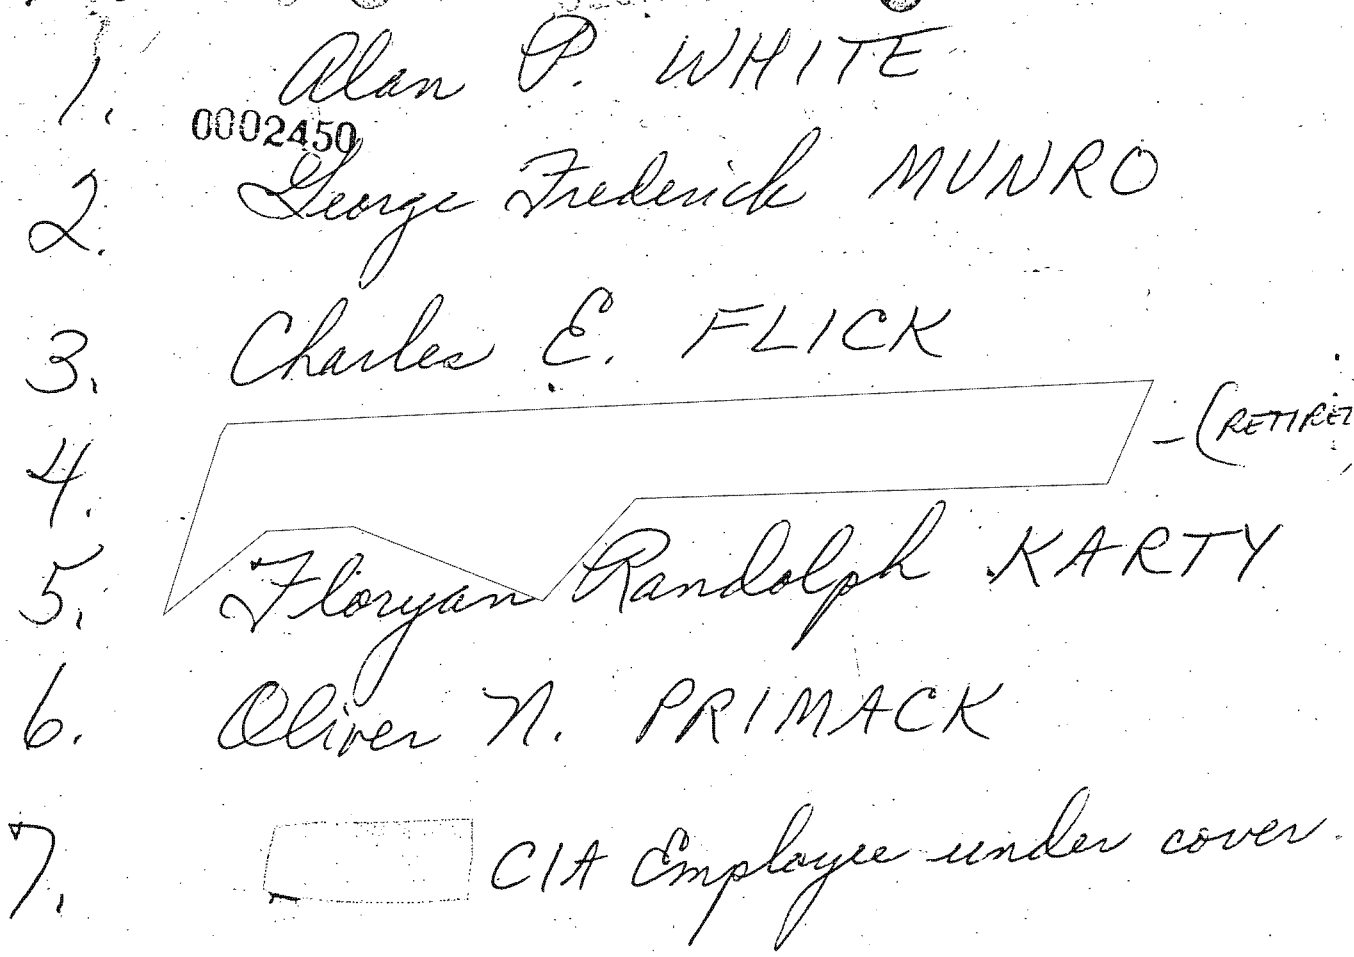 1. Alan P. WHITE
0002450
2. George Frederick MUNRO
3. Charles E. FLICK
4. - (RETIRED
5. Floryan Randolph KARTY
6. Oliver N. PRIMACK
7. CIA Employee under cover.